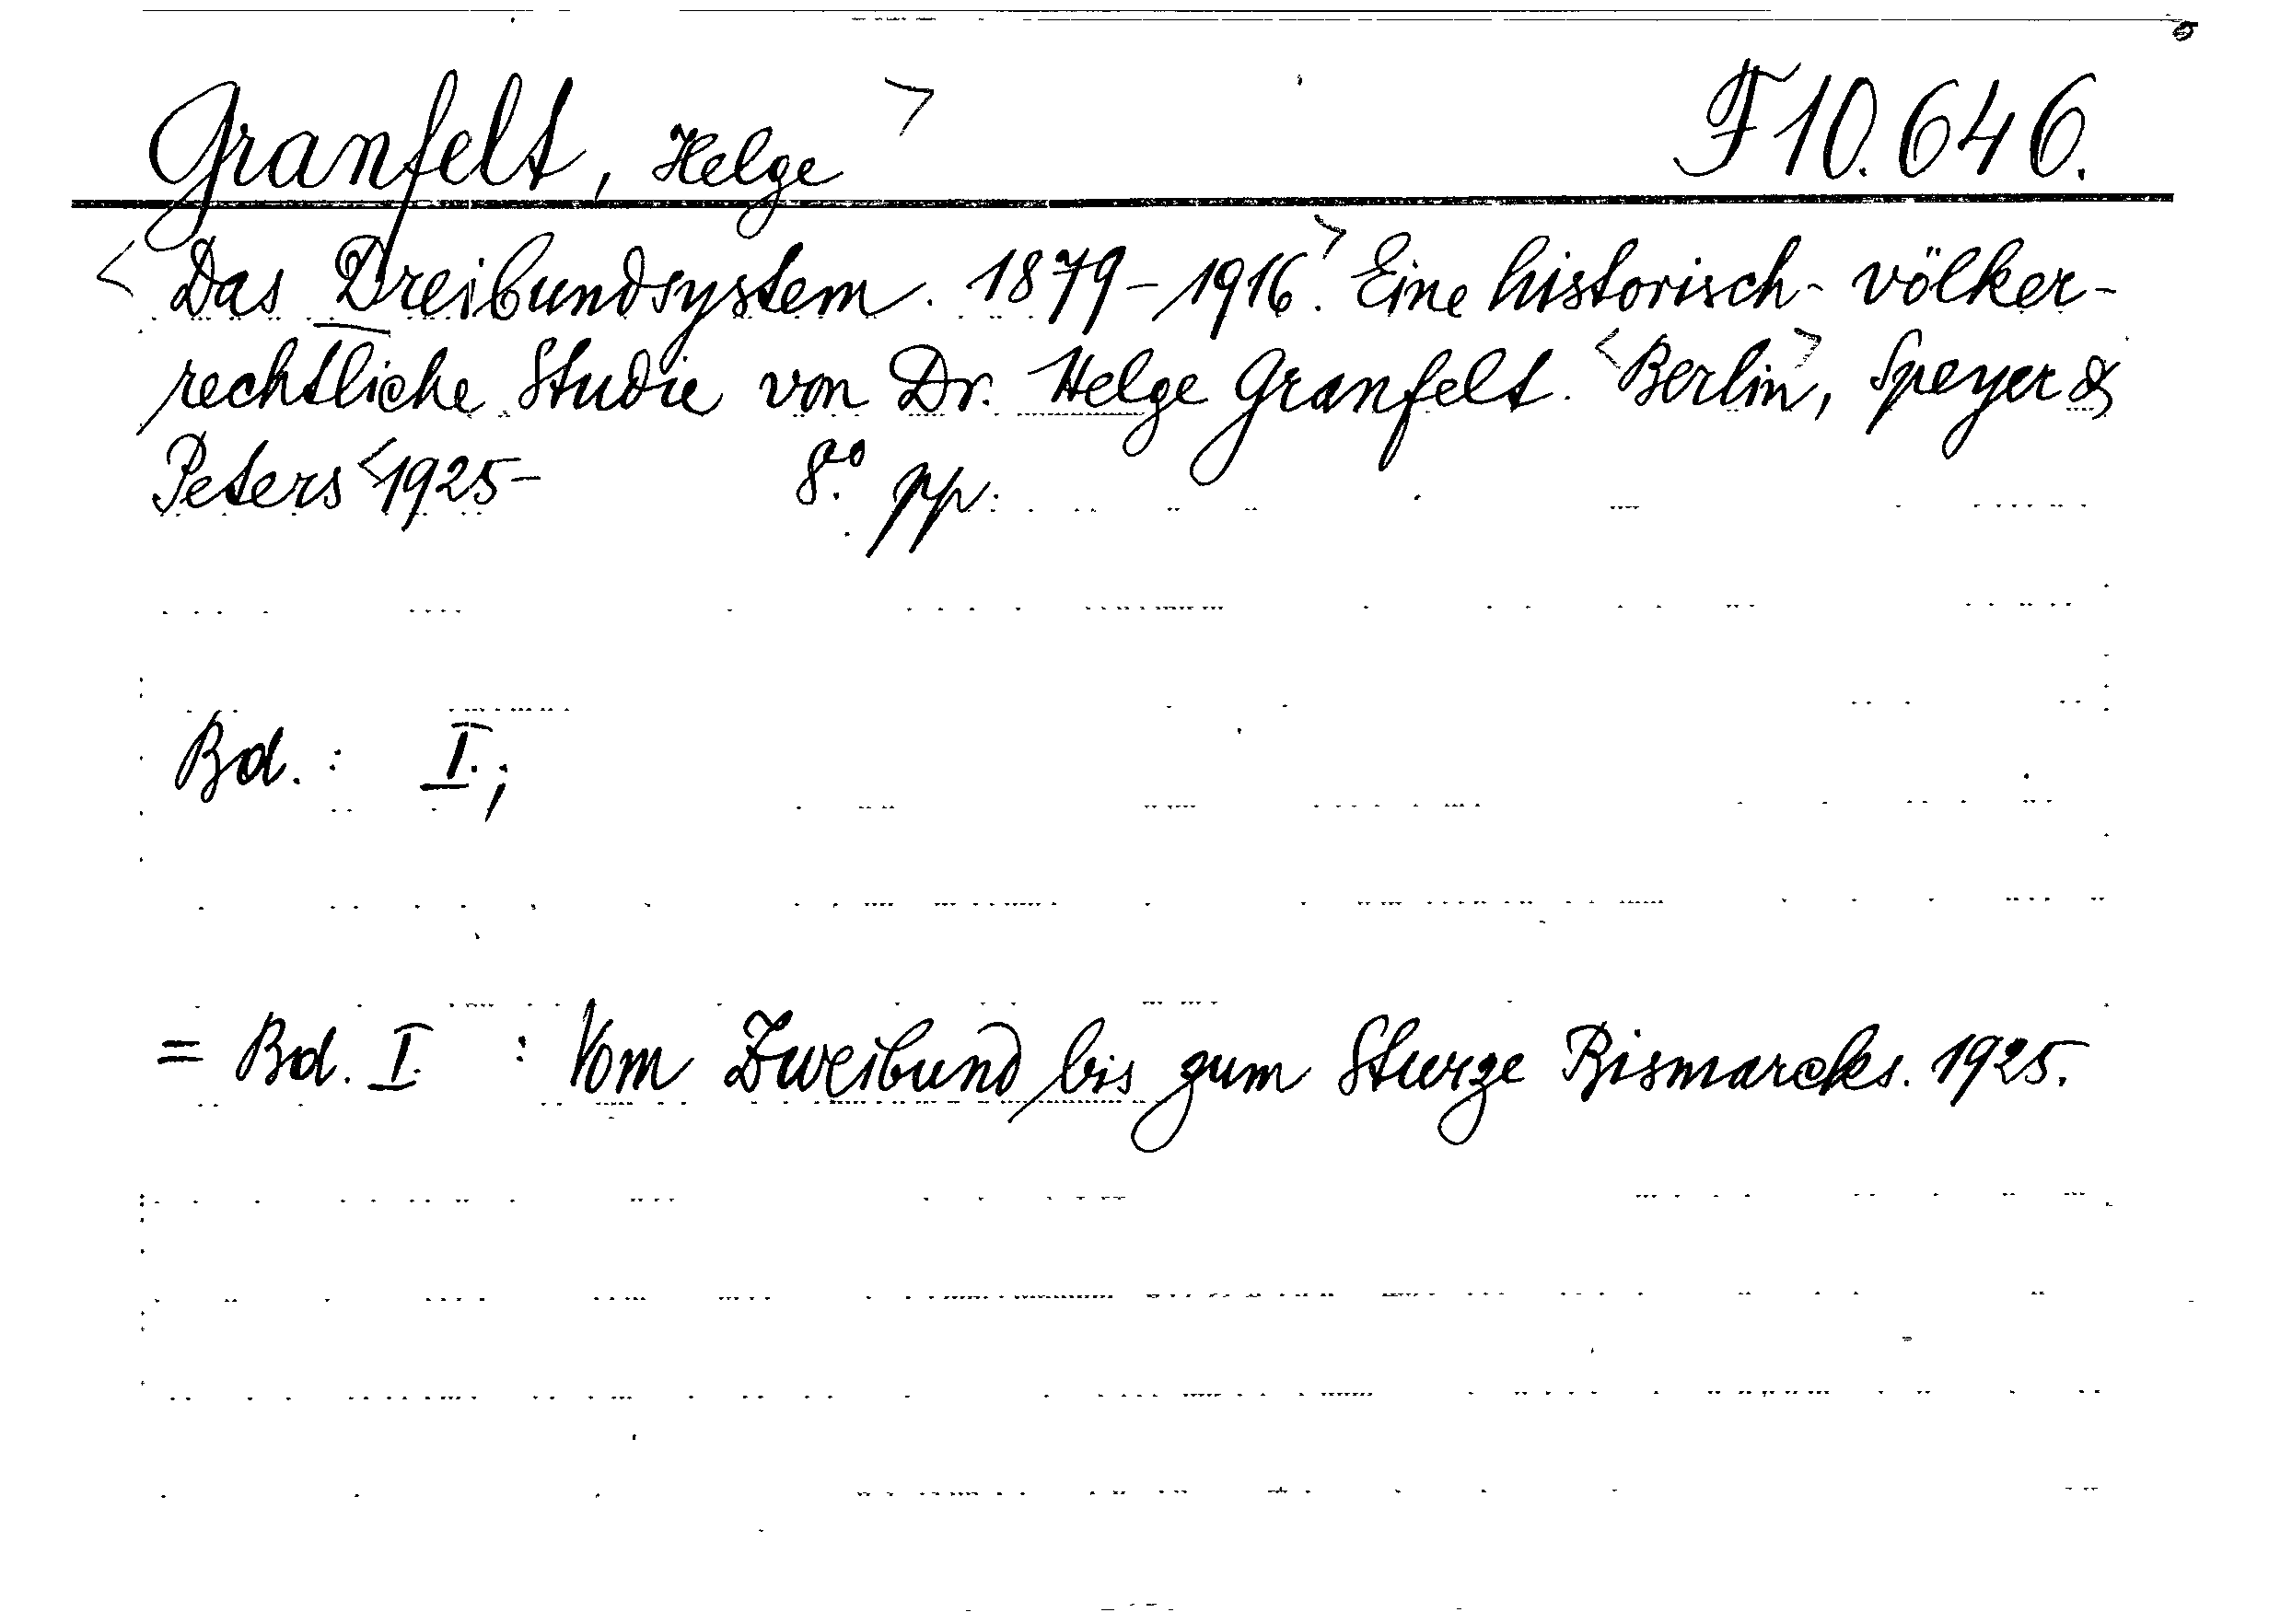 Granfelt, Helge> F10.646.
<Das Dreibundsystem. 1879-1916.> Eine historisch-völker-
rechtliche Studie von Dr. Helge Granfelt. <Berlin>, Speyer &
Peters <1925- 8.° pp.
Bd.: I.;
= Bd. I. : Vom Zweibund bis zum Sturze Bismarcks. 1925.